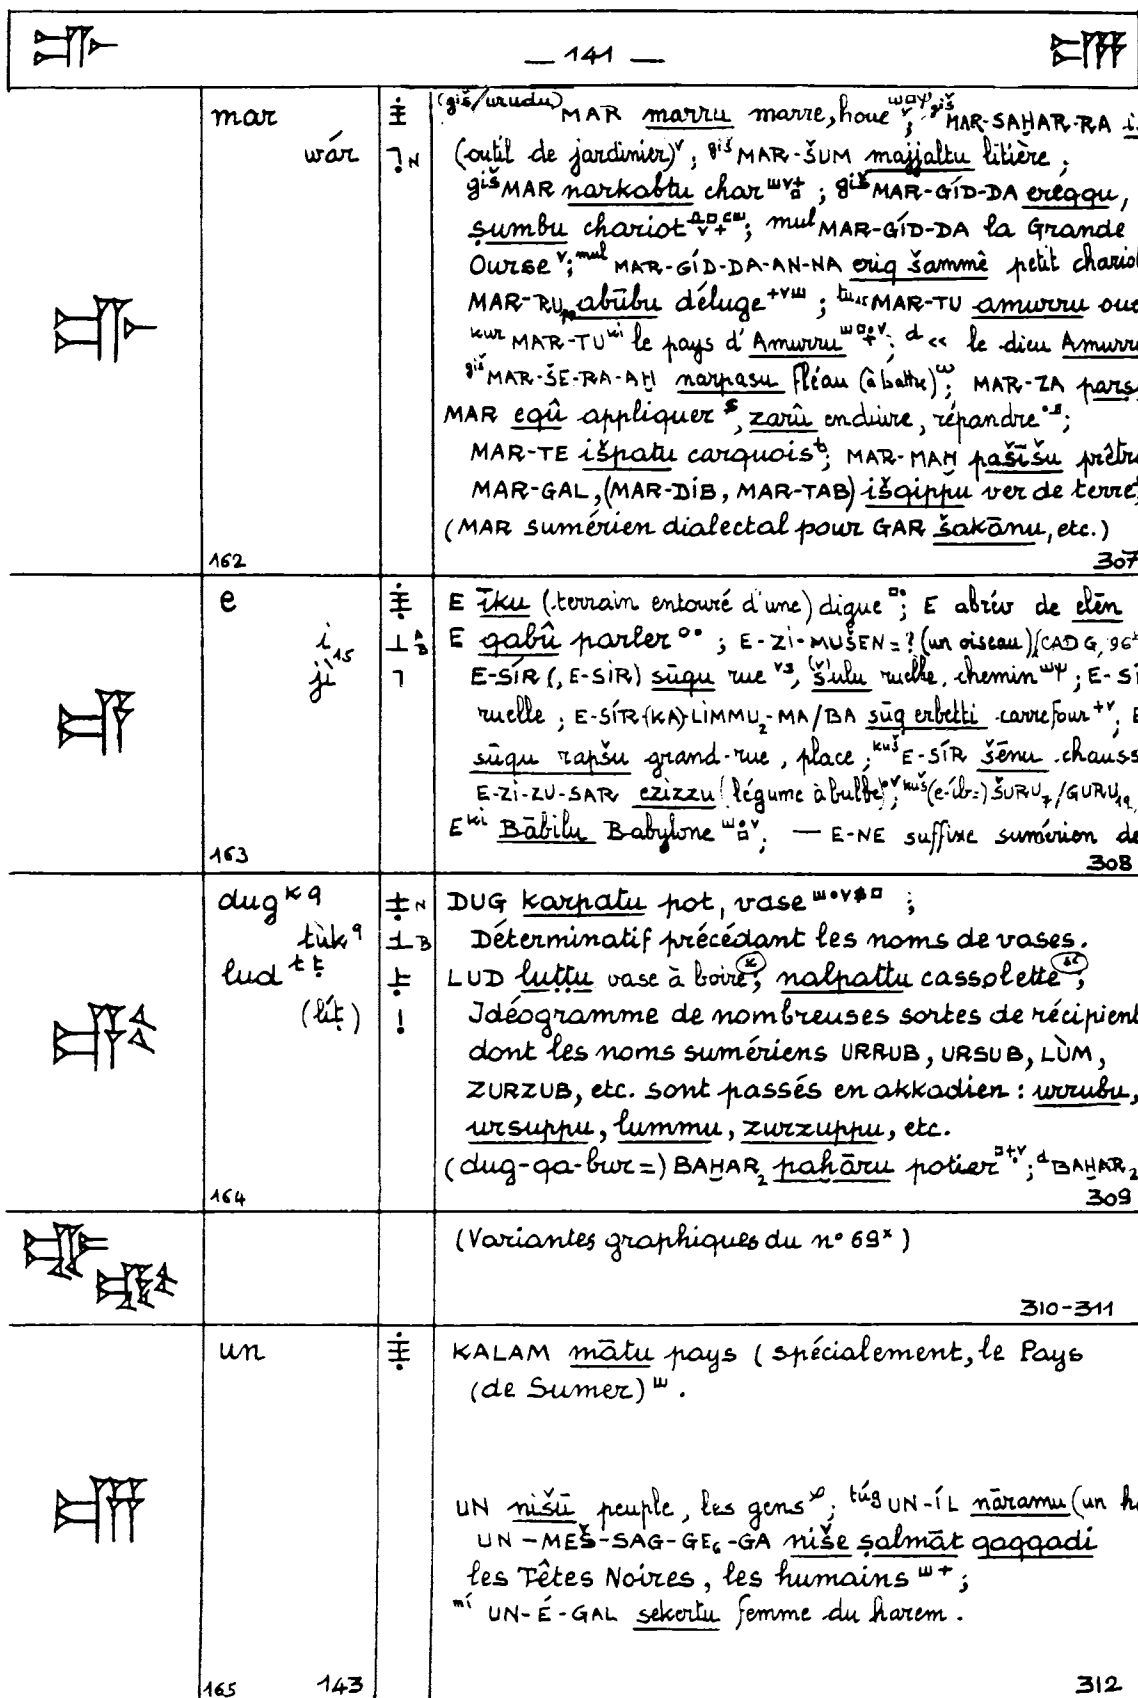 — 141 —
mar
wár
(giš/urudu) MAR marru marre, houe ; giš MAR-SAḪAR-RA
(outil de jardinier) ; giš MAR-ŠUM majjaltu litière ;
giš MAR narkabtu char ; giš MAR-GÍD-DA ereqqu,
ṣumbu chariot ; mul MAR-GÍD-DA la Grande
Ourse ; mul MAR-GÍD-DA-AN-NA eriq šammê petit
MAR-RU₁₀ abūbu déluge ; tu₁₅ MAR-TU amurru
kur MAR-TU ki le pays d'Amurru ; d << le dieu Amurru
giš MAR-ŠE-RA-AḪ narpasu fléau (à battre) ; MAR-ZA
MAR eqû appliquer, zarû enduire, répandre ;
MAR-TE išpatu carquois ; MAR-MAḪ pašīšu
MAR-GAL, (MAR-DIB, MAR-TAB) išqippu ver de terre
(MAR sumérien dialectal pour GAR šakānu, etc.)
162 307
e
i₁₅
jì
E īku (terrain entouré d'une) digue ; E abrév de elēn
E qabû parler ; E-ZI-MUŠEN = ? (un oiseau) (CAD G, 96
E-SÍR (, E-SIR) sūqu rue, sulu ruelle, chemin ;
ruelle ; E-SÍR-(KA)-LÍMMU₂-MA/BA sūq erbetti carrefour ;
sūqu rapšu grand-rue, place ; kuš E-SÍR šēnu
E-ZI-ZU-SAR ezizzu (légume à bulbe) ; kuš (e-íb=) ŠURU₇/GURU₁₉
E ki Bābilu Babylone ; — E-NE suffixe sumérien de
163 308
dug k q
tùk q
lud t ṭ
(líṭ)
DUG karpatu pot, vase ;
Déterminatif précédant les noms de vases.
LUD luṭṭu vase à boire ; nalpattu cassolette ;
Idéogramme de nombreuses sortes de récipient
dont les noms sumériens URRUB, URSUB, LÙM,
ZURZUB, etc. sont passés en akkadien : urrubu,
ursuppu, lummu, zurzuppu, etc.
(dug-qa-bur=) BAḪAR₂ paḫāru potier ; d BAḪAR₂
164 309
(Variantes graphiques du n° 69x)
310-311
un
KALAM mātu pays (spécialement, le Pays
(de Sumer) .
UN nišū peuple, les gens ; túg UN-ÍL nāramu (un
UN-MEŠ-SAG-GE₆-GA niše ṣalmāt qaqqadi
les Têtes Noires, les humains ;
mí UN-É-GAL sekertu femme du harem.
165 143 312